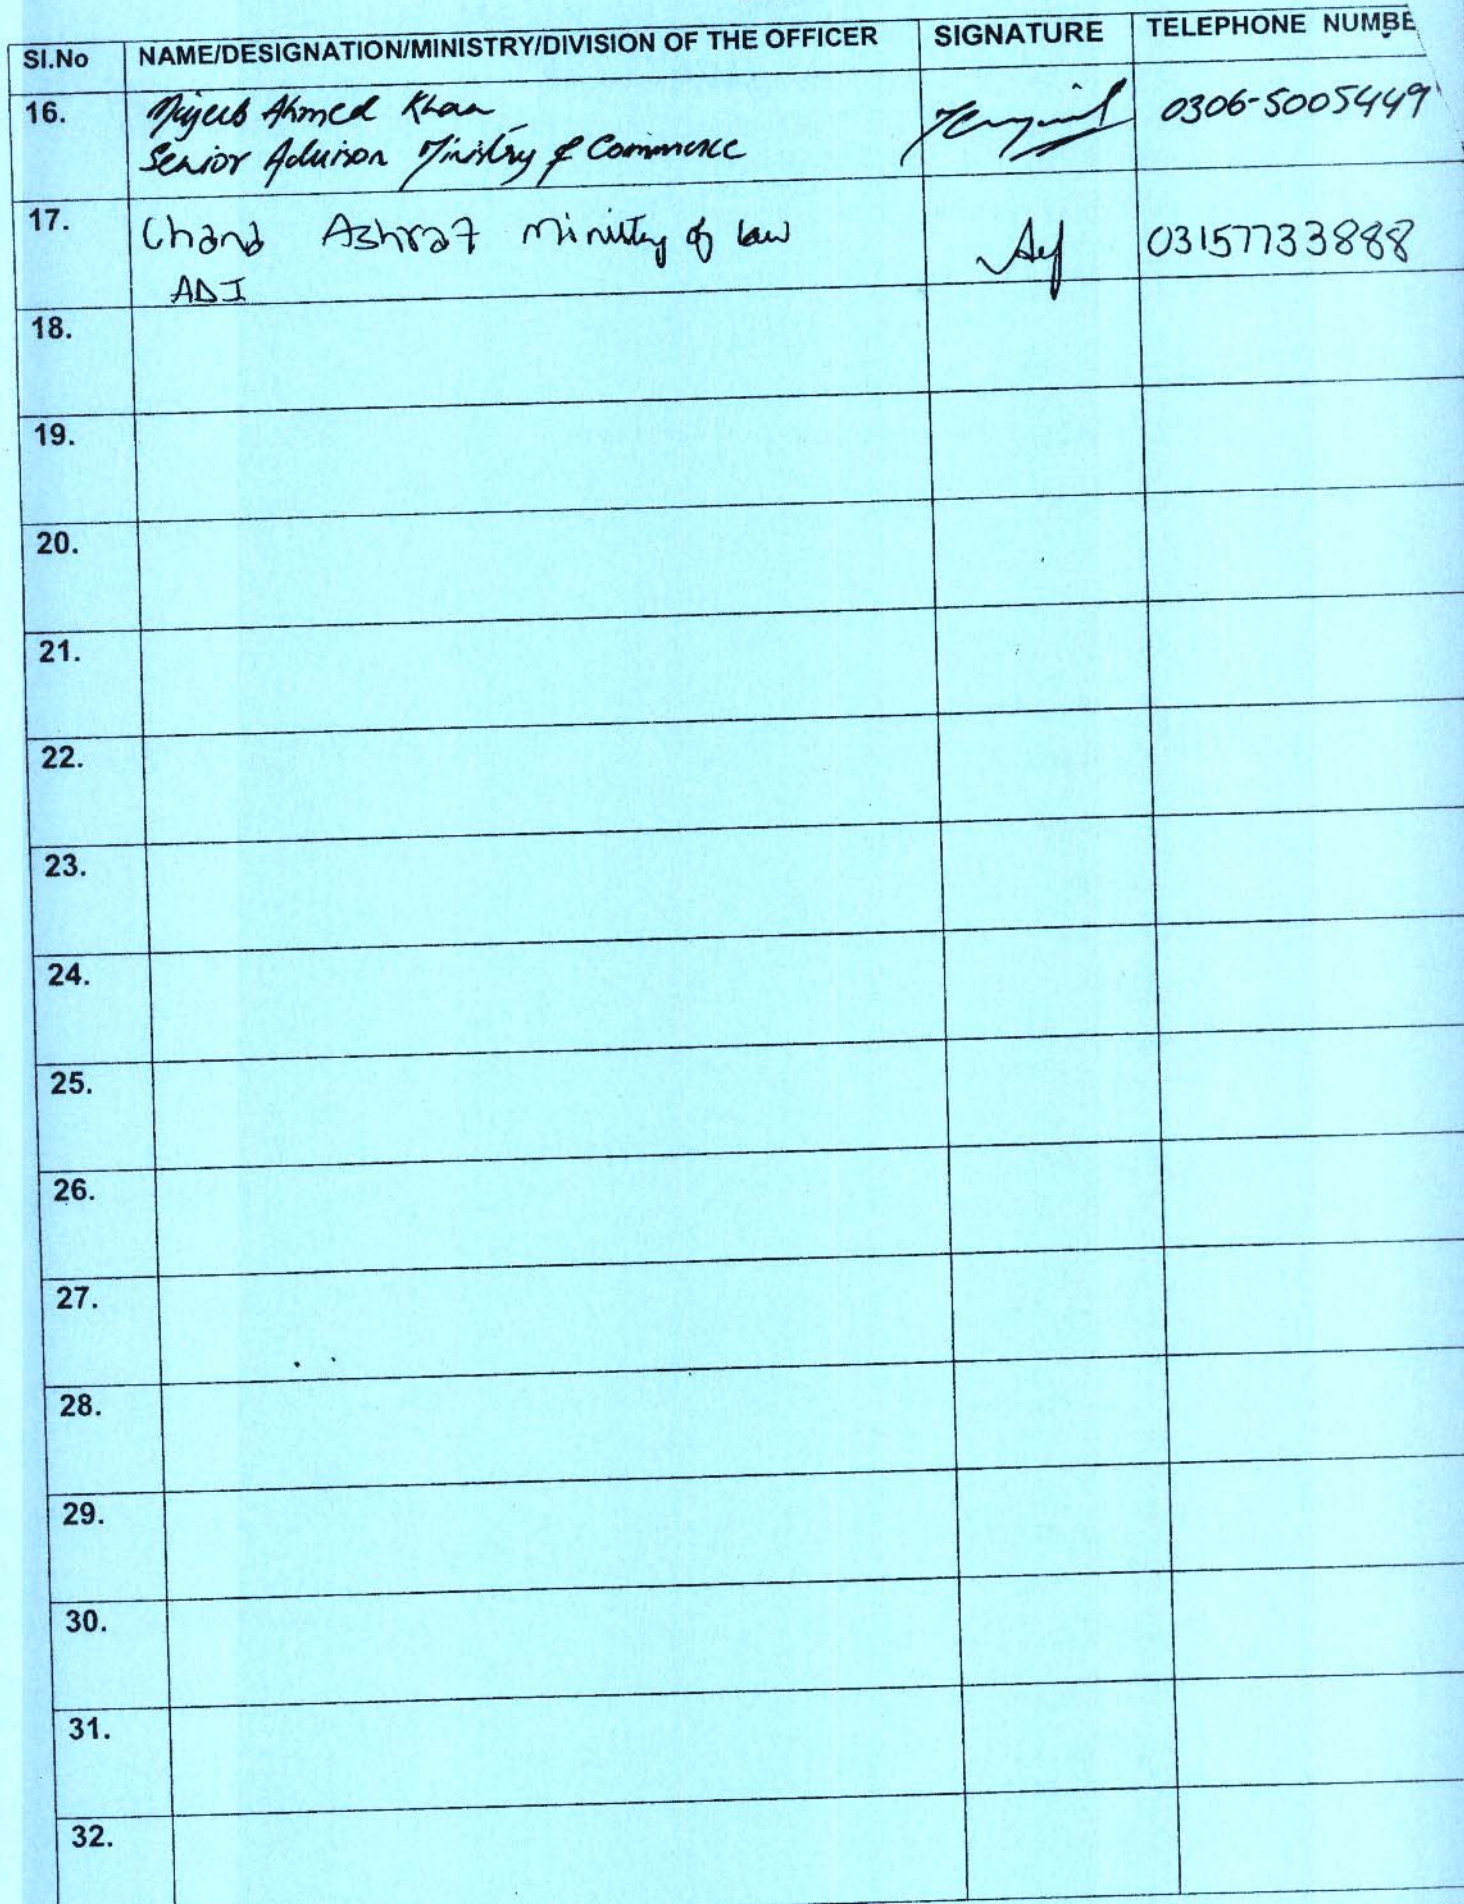 SI.No NAME/DESIGNATION/MINISTRY/DIVISION OF THE OFFICER SIGNATURE TELEPHONE NUMBE
16. Ahmed Khan 0306-5005449
Senior Advisor Ministry of Commerce
17. Chand Ashraf Ministry of law 03157733888
ADI
18.
19.
20.
21.
22.
23.
24.
25.
26.
27.
28.
29.
30.
31.
32.